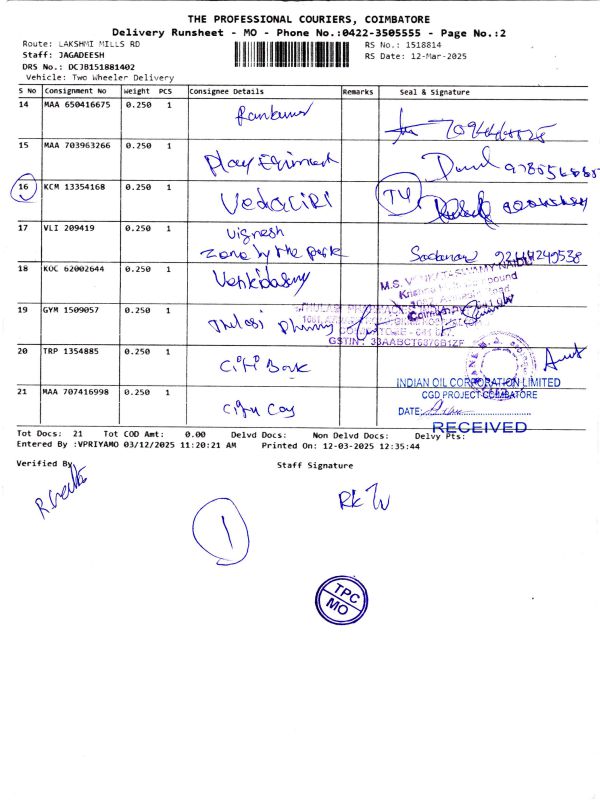 THE PROFESSIONAL COURIERS, COIMBATORE
Delivery Runsheet - MO - Phone No.:0422-3505555 - Page No.:2
Route: LAKSHMI MILLS RD
RS No.: 1518814
Staff: JAGADEESH
RS Date: 12-Mar-2025
DRS No.: DCJB151881402
Vehicle: Two Wheeler Delivery
S No Consignment No Weight PCS Consignee Details Remarks Seal & Signature
14 MAA 650416675 0.250 1
15 MAA 703963266 0.250 1
16 KCM 13354168 0.250 1 Vedagiri T4
17 VLI 209419 0.250 1 Vignesh
Zone by the park
18 KOC 62002644 0.250 1
M.S. VENKATASWAMY NAIDU
19 GYM 1509057 0.250 1 Thulasi
GSTIN: 33AABCT6376B1ZF
20 TRP 1354885 0.250 1 Citi Bank
INDIAN OIL CORPORATION LIMITED
CGD PROJECT COIMBATORE
21 MAA 707416998 0.250 1
DATE:
RECEIVED
Tot Docs: 21 Tot COD Amt: 0.00 Delvd Docs: Non Delvd Docs: Delvy Pts:
Entered By :VPRIYAMO 03/12/2025 11:20:21 AM Printed On: 12-03-2025 12:35:44
Verified By
Staff Signature
1
TPC
MO